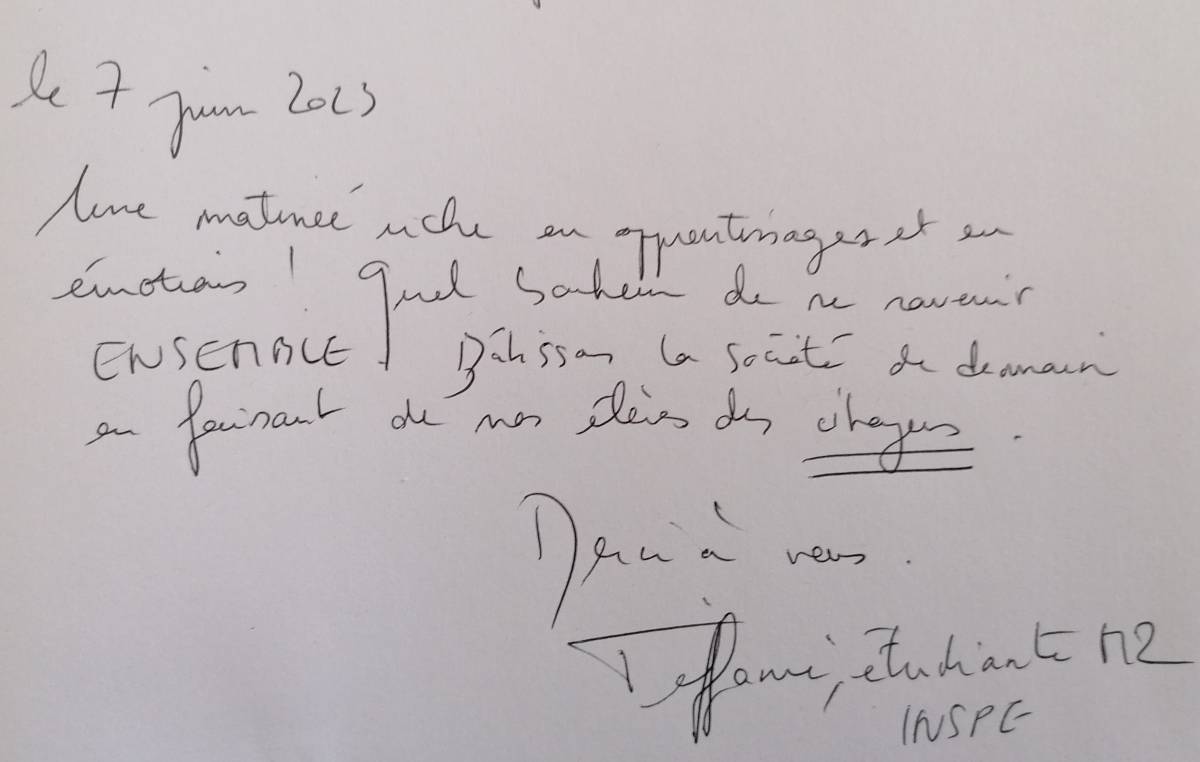 le 7 juin 2023
Une matinée riche en apprentissages et en
émotions ! Quel bonheur de se souvenir
ENSEMBLE ! Bâtissons la société de demain
en faisant de nos élèves des citoyens .
Merci à vous .
Tiffanie, étudiante M2
INSPE